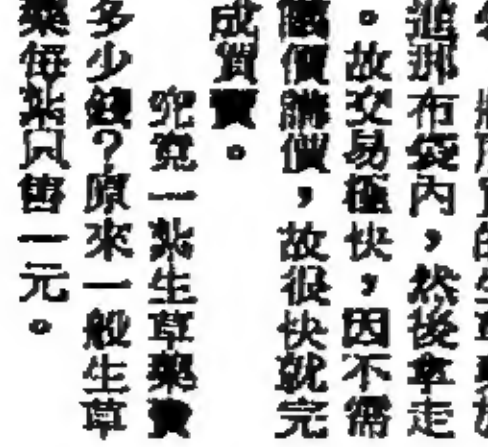 進那布袋內，然後拿走
。故交易極快，因不需
價講價，故很快就完
成買賣。
究竟一紮生草藥賣
多少錢？原來一般生草
藥每紮只售一元。